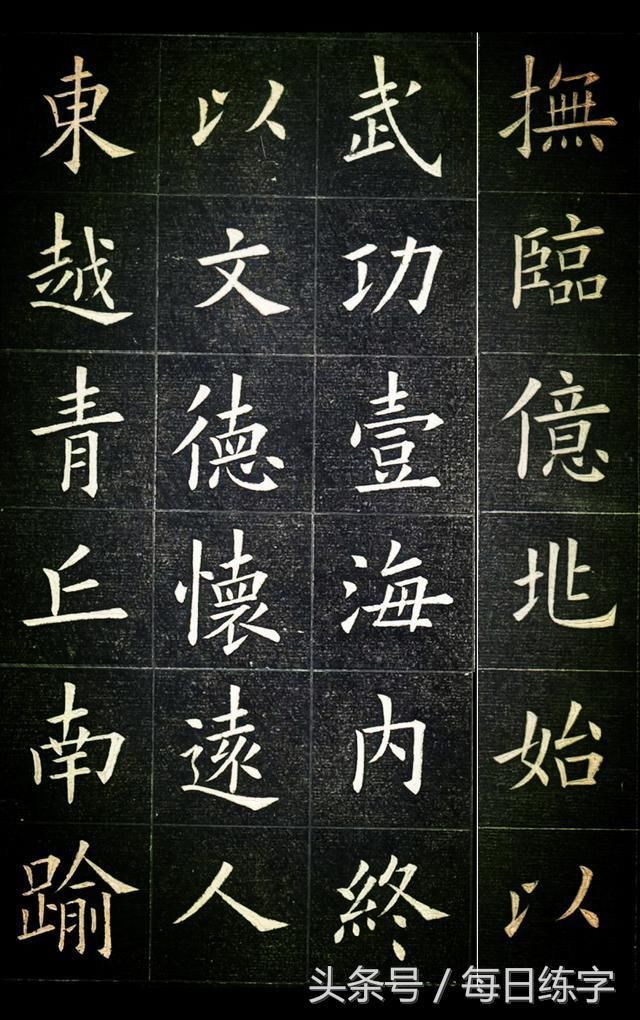 撫臨億兆始以
武功壹海内終
以文德懷遠人
東越青丘南踰
头条号 / 每日练字